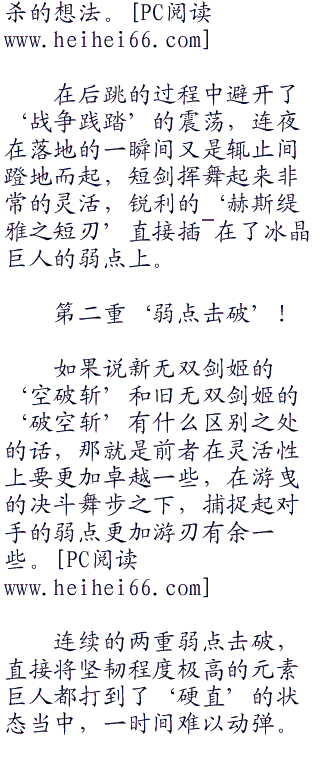 杀的想法。[PC阅读
www.heihei66.com]
在后跳的过程中避开了
‘战争践踏’的震荡，连夜
在落地的一瞬间又是辄止间
蹬地而起，短剑挥舞起来非
常的灵活，锐利的‘赫斯缇
雅之短刃’直接插¯在了冰晶
巨人的弱点上。
第二重‘弱点击破’！
如果说新无双剑姬的
‘空破斩’和旧无双剑姬的
‘破空斩’有什么区别之处
的话，那就是前者在灵活性
上要更加卓越一些，在游曳
的决斗舞步之下，捕捉起对
手的弱点更加游刃有余一
些。[PC阅读
www.heihei66.com]
连续的两重弱点击破，
直接将坚韧程度极高的元素
巨人都打到了‘硬直’的状
态当中，一时间难以动弹。